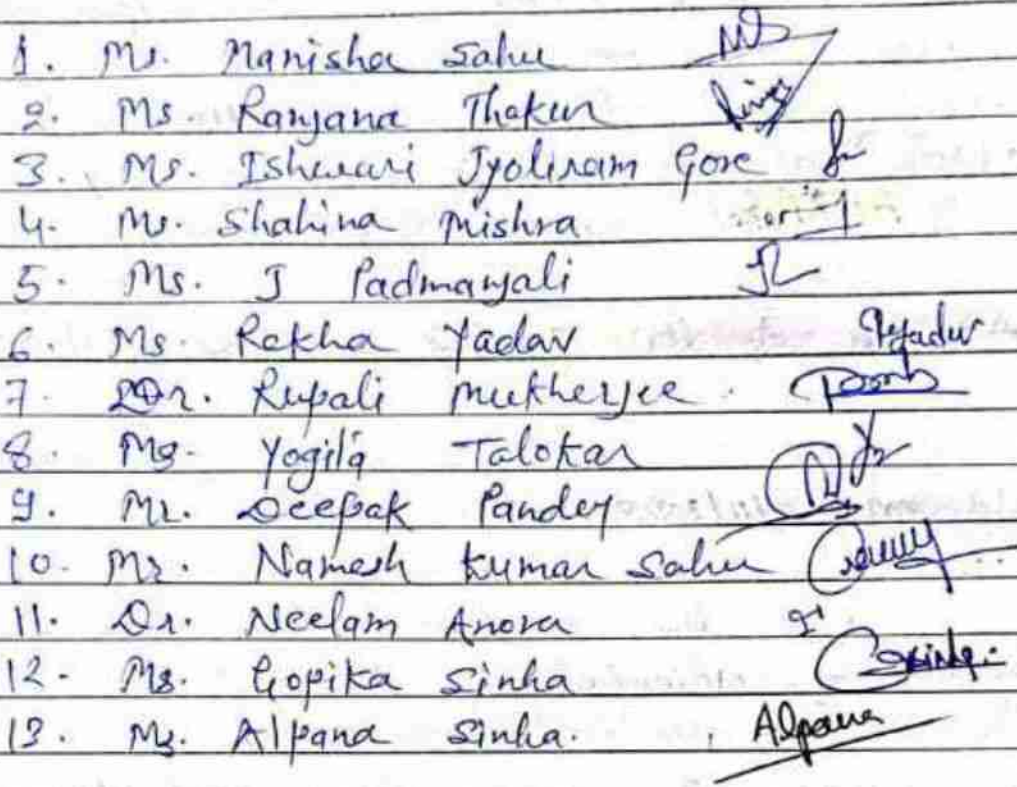 1. Ms. Manisha Sahu MS
2. Ms. Ranjana Thakur
3. Ms. Ishwari Jyotiram Gore
4. Ms. Shahina Mishra
5. Ms. J Padmanjali
6. Ms. Rekha Yadav RYadav
7. Dr. Rupali Mukherjee.
8. Ms. Yogita Talokar
9. Mr. Deepak Pandey
10. Mr. Namesh Kumar Sahu
11. Dr. Neelam Arora
12. Ms. Gopika Sinha
13. Ms. Alpana Sinha. Alpana